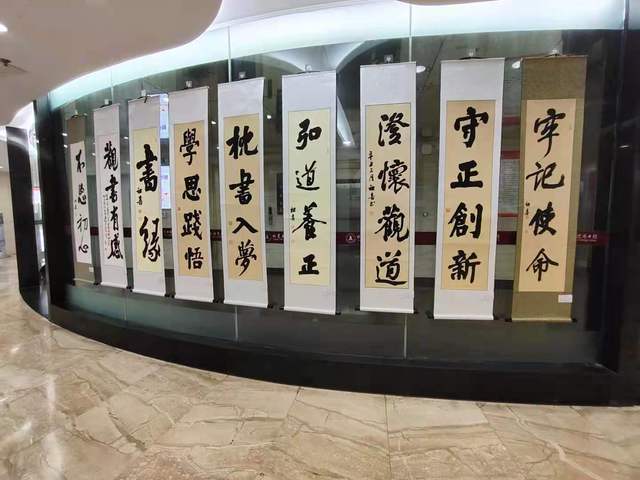 牢記使命
守正創新
澄懷觀道
弘道養正
枕書入夢
學思踐悟
書緣
觀書有感
不忘初心